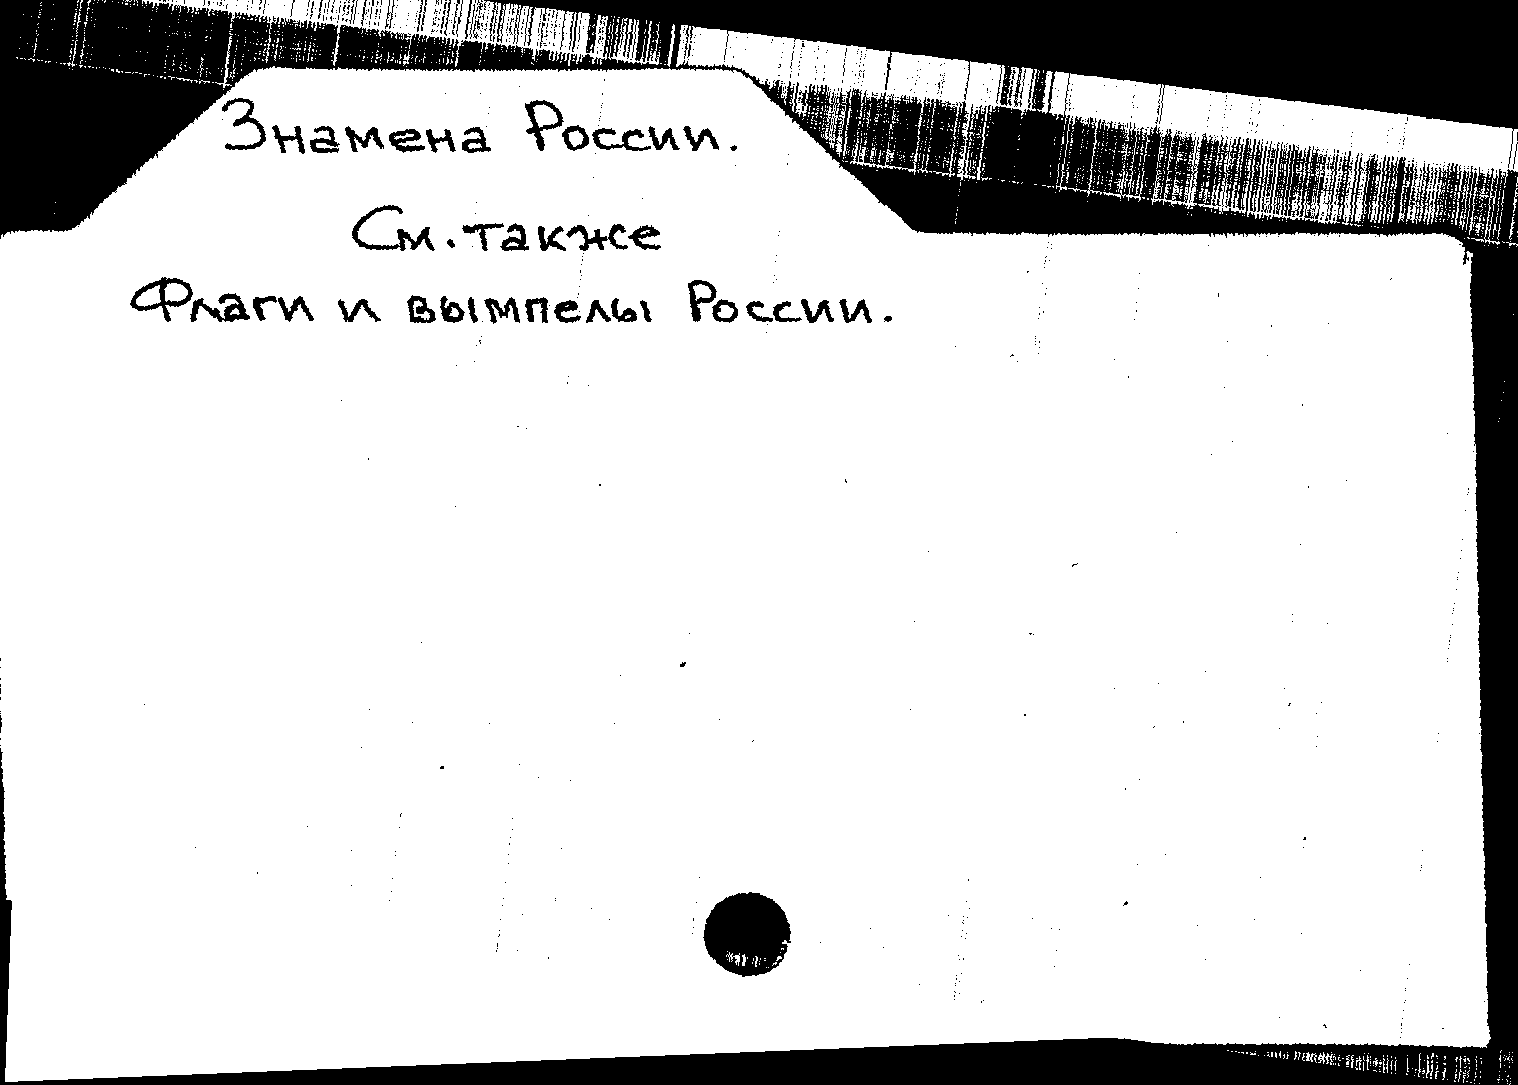 Знамена России.
См. также
Флаги и вымпелы России.